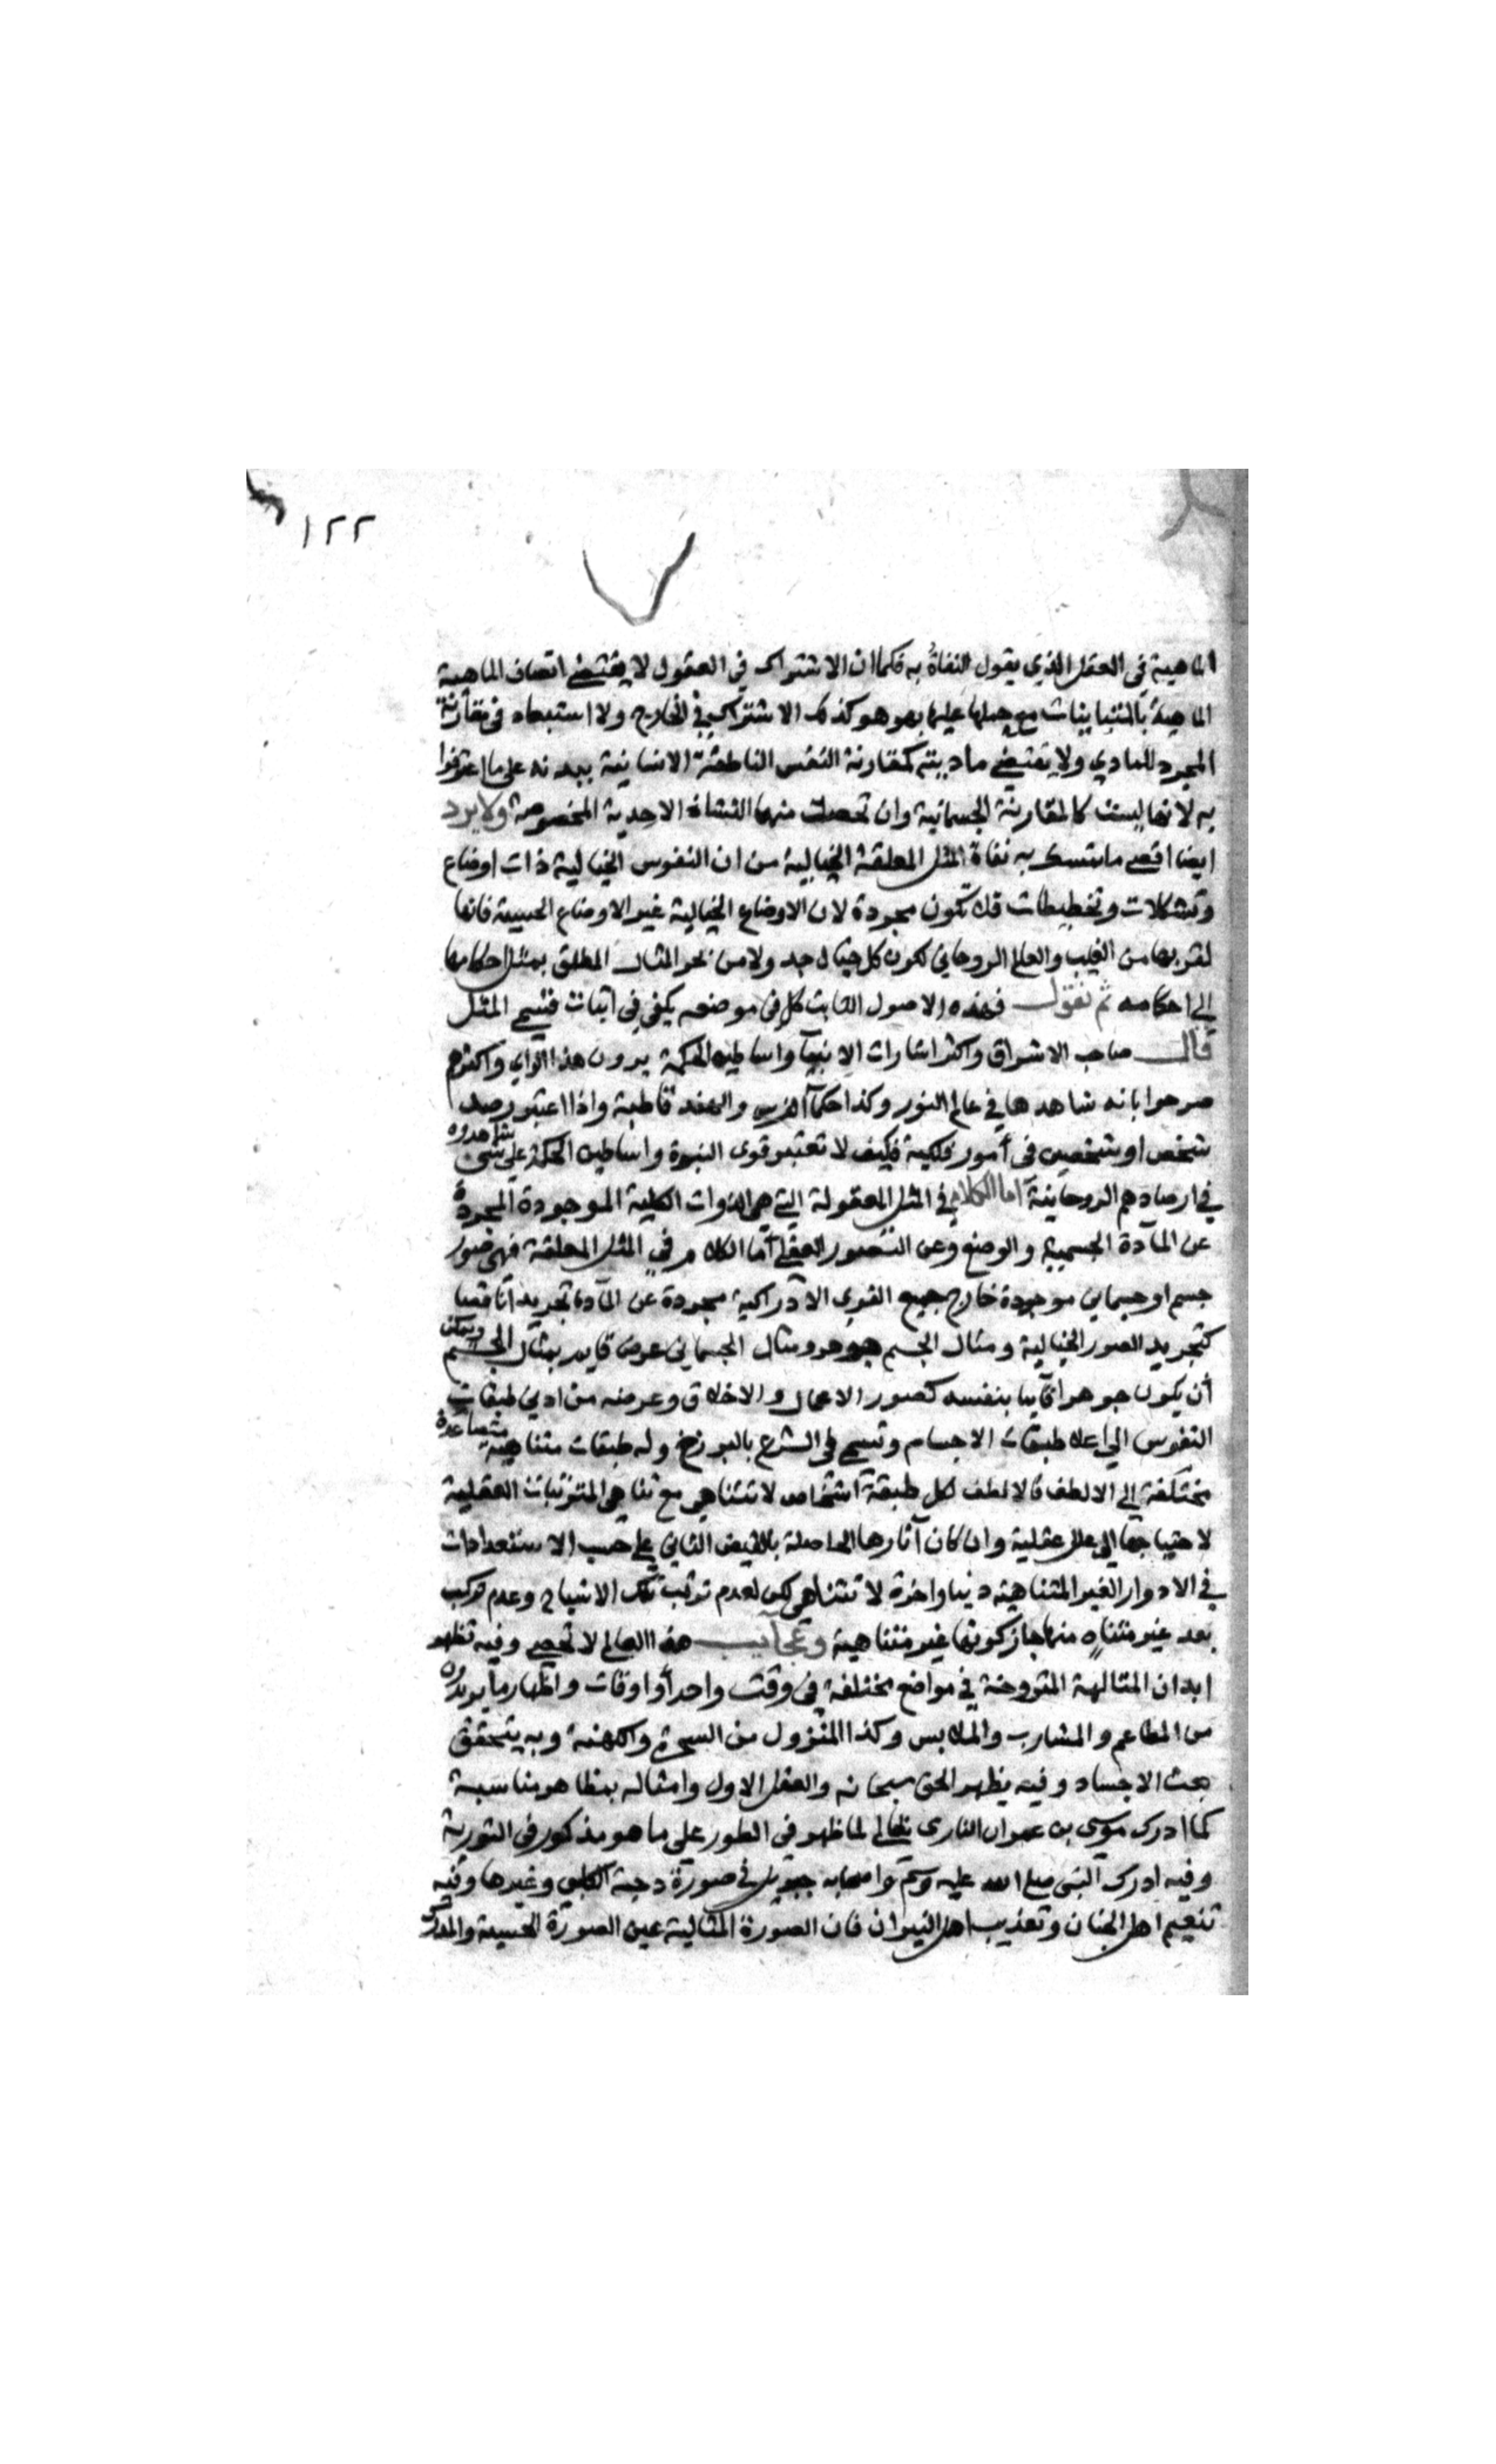 ١٢٢
الماهية في العقل الذي يقول النفاة به فكما ان الاشتراك في العقول لا يقتضي اتصاف الماهية
الماهية بالمتباينات مع حملها عليها بهو هو كذلك الاشتراك في الخارج ولا استبعاد في مقارنة
المجرد للمادي ولا يقتضي ماديته كمقارنة النفس الناطقة الانسانية ببدنه على ما اعترفوا
به لانها ليست كالمقارنة الجسمانية وان تحصلت منهما النشاة الاحدية المخصوصة ولا يرد
ايضا اقصى ما يتمسك به نفاة المثل المعلقة الخيالية من ان النفوس الخيالية ذات اوضاع
وتشكلات وتخطيطات فلا تكون مجردة لان الاوضاع الخيالية غير الاوضاع الحسية فانها
لقربها من الغيب والعالم الروحاني لكون كل خيال ولا من نحو المثال المطلق بمثل احكامها
الى احكامه ثم نقول فهذه الاصول الثابت كل في موضعه يكفي في اثبات قسمي المثل
قال صاحب الاشراق واكثر اشارات الانبيآ واساطين الحكمة يرون هذا الراي واكثرهم
صرحوا بانه شاهدها في عالم النور وكذا حكمآ الفرس والهند قاطبة واذا اعتبر رصد
شخص او شخصين في أمور فلكية فكيف لا تعتبر قوى النبوة واساطين الحكمة على شي شاهدوه
في ارصادهم الروحانية اما الكلام في المثل المعقولة التي هي الذوات الكلية الموجودة المجردة
عن المآدة الجسمية والوضع وعن التصور العقلي أما الكلام في المثل المعلقة فهي صور
جسم او جسماني موجودة خارج جميع القوى الادراكية مجردة عن المآدة تجريدا ناقصا
كتجريد الصور الخيالية ومثال الجسم جوهر ومثال الجسماني عرض قايم بمثال الجسم ويمكن
أن يكون جوهرا قآيما بنفسه كصور الاعمال والاخلاق وعرضه من ادني طبقات
النفوس الي اعلا طبقات الاجسام وتسمي في الشرع بالبرزخ وله طبقات متناهية متصاعدة
مختلفة الى الالطف فالالطف لكل طبقة أشخاص لا تتناهي مع تناهي المترتبات العقلية
لاحتياجها الي علل عقلية وان كان آثارها الحاصلة بالفيض الثاني على حسب الاستعدادات
في الادوار الغير المتناهية دنيا واخرة لا تتناهي لكن لعدم ترتب تلك الاشباح وعدم تركب
بعد غير متناه منها جاز كونها غير متناهية وعجآيب هذا العالم لا تحصى وفيه تظهر
ابدان المتالهة المتروحنة في مواضع مختلفة في وقت واحد أو اوقات واظهار ما يريدوه
من المطاعم والمشارب والملابس وكذا المنزول من السحرة والكهنة وبه يتحقق
بعث الاجساد وفيه يظهر الحق سبحانه والعقل الاول وامثاله بمظاهر مناسبة
كما ادرك موسى بن عمران الناري تعالي لما ظهر في الطور علي ما هو مذكور في التورية
وفيه ادرك النبي صلى الله عليه وسلم واصحابه جبريل في صورة دحية الكلبي وغيرها وفيه
تنعيم اهل الجنان وتعذيب اهل النيران فان الصورة المثالية عين الصورة الحسية والمدرك